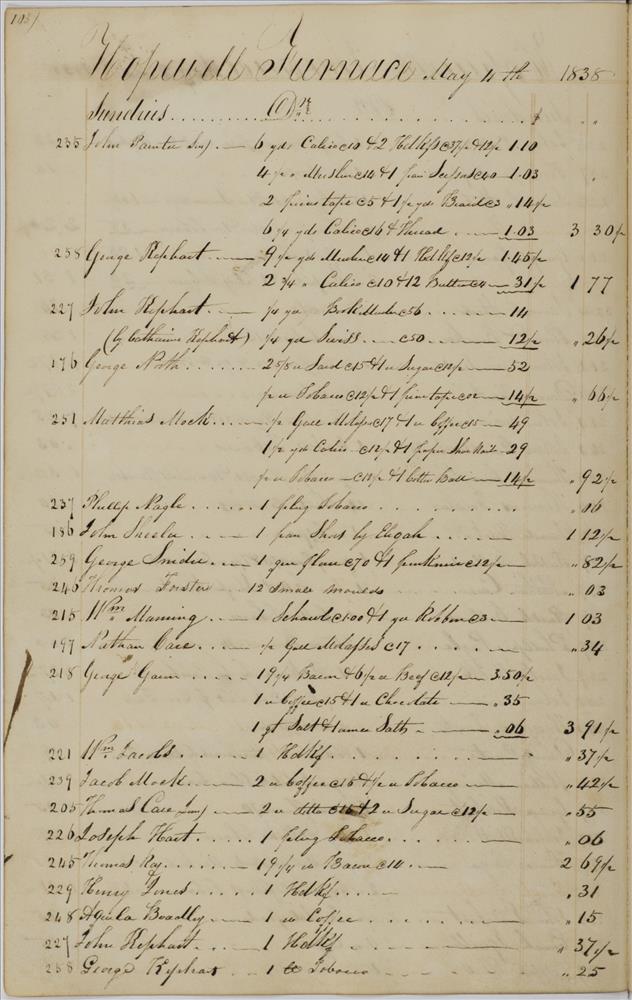 Hopewell Furnace May 4th 1838
Sundries Dr $ "
235 John Painter 6 yds Calico c10 & 2 Hdkfs c37½ & 12½ 1.10
4 ½ " Muslin c14 & 1 pair Scissors c40 1.03
2 piece tape c5 & 1 ½ yds Braid c3 " 14½
6 ¼ yds Calico c16 & thread 1.03 3 30½
258 George Kephart 9 ½ yds Muslin c14 & 1 Hdkf c12½ 1.45½
2 ¾ " Calico c10 & 12 Buttons c4 31½ 1 77
227 John Kephart ¼ yd Muslin c56 14
(by Catharine Kephart) ¼ yd Swiss c50 12½ " 26½
176 George North 2 5/8 " Lard c15 & 1 " Sugar c12½ 52
½ " Tobacco c12½ & 1 piece tape c02 14½ " 66½
251 Matthias Mock ½ Gall Molasses c17 & 1 " Coffee c15 49
1 ½ yds Calico c12½ & 1 paper Shoe Nails 29
½ " Tobacco c12½ & 1 Cotton Ball 14½ " 92½
237 Phillip Nagle 1 plug Tobacco " 06
186 John Sheeler 1 pair Shoes by Elijah 1 12½
259 George Snider 1 c70 & 1 penknife c12½ " 82½
246 Thomas Forster 12 Small moulds " 03
215 Wm Manning 1 Schawl c1.00 & 1 yd Ribbon c3 1 03
197 Nathan Care ½ Gall Molasses c17 " 34
218 George Gawn 19 ¼ Bacon & 6 ½ " Beef c12½ 3.50½
1 " Coffee c15 & 1 " Chocolate " 35
1 qt Salt & 1 ounce Salts " 06 3 91½
221 Wm Jacobs 1 Hdkf " 37½
239 Jacob Mock 2 " Coffee c15 & ½ " Tobacco " 42½
205 Thomas Care 2 " ditto c15 & 2 " Sugar c12½ " 55
226 Joseph Hart 1 plug Tobacco " 06
245 Thomas Roy 19 ¼ " Bacon c14 2 69½
229 Henry Jones 1 Hdkf " 31
248 Aquila Boadley 1 " Coffee " 15
227 John Kephart 1 Hdkf " 37½
258 George Kephart 1 " Tobacco " 25